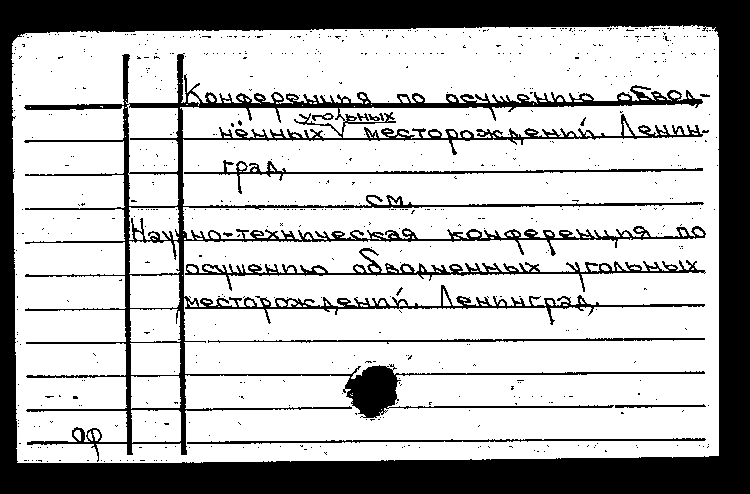 Конференция по осушению обвод-
нённых угольных месторождений. Ленин-
град,
см.
Научно-техническая конференция по
осушению обводненных угольных
месторождений. Ленинград,